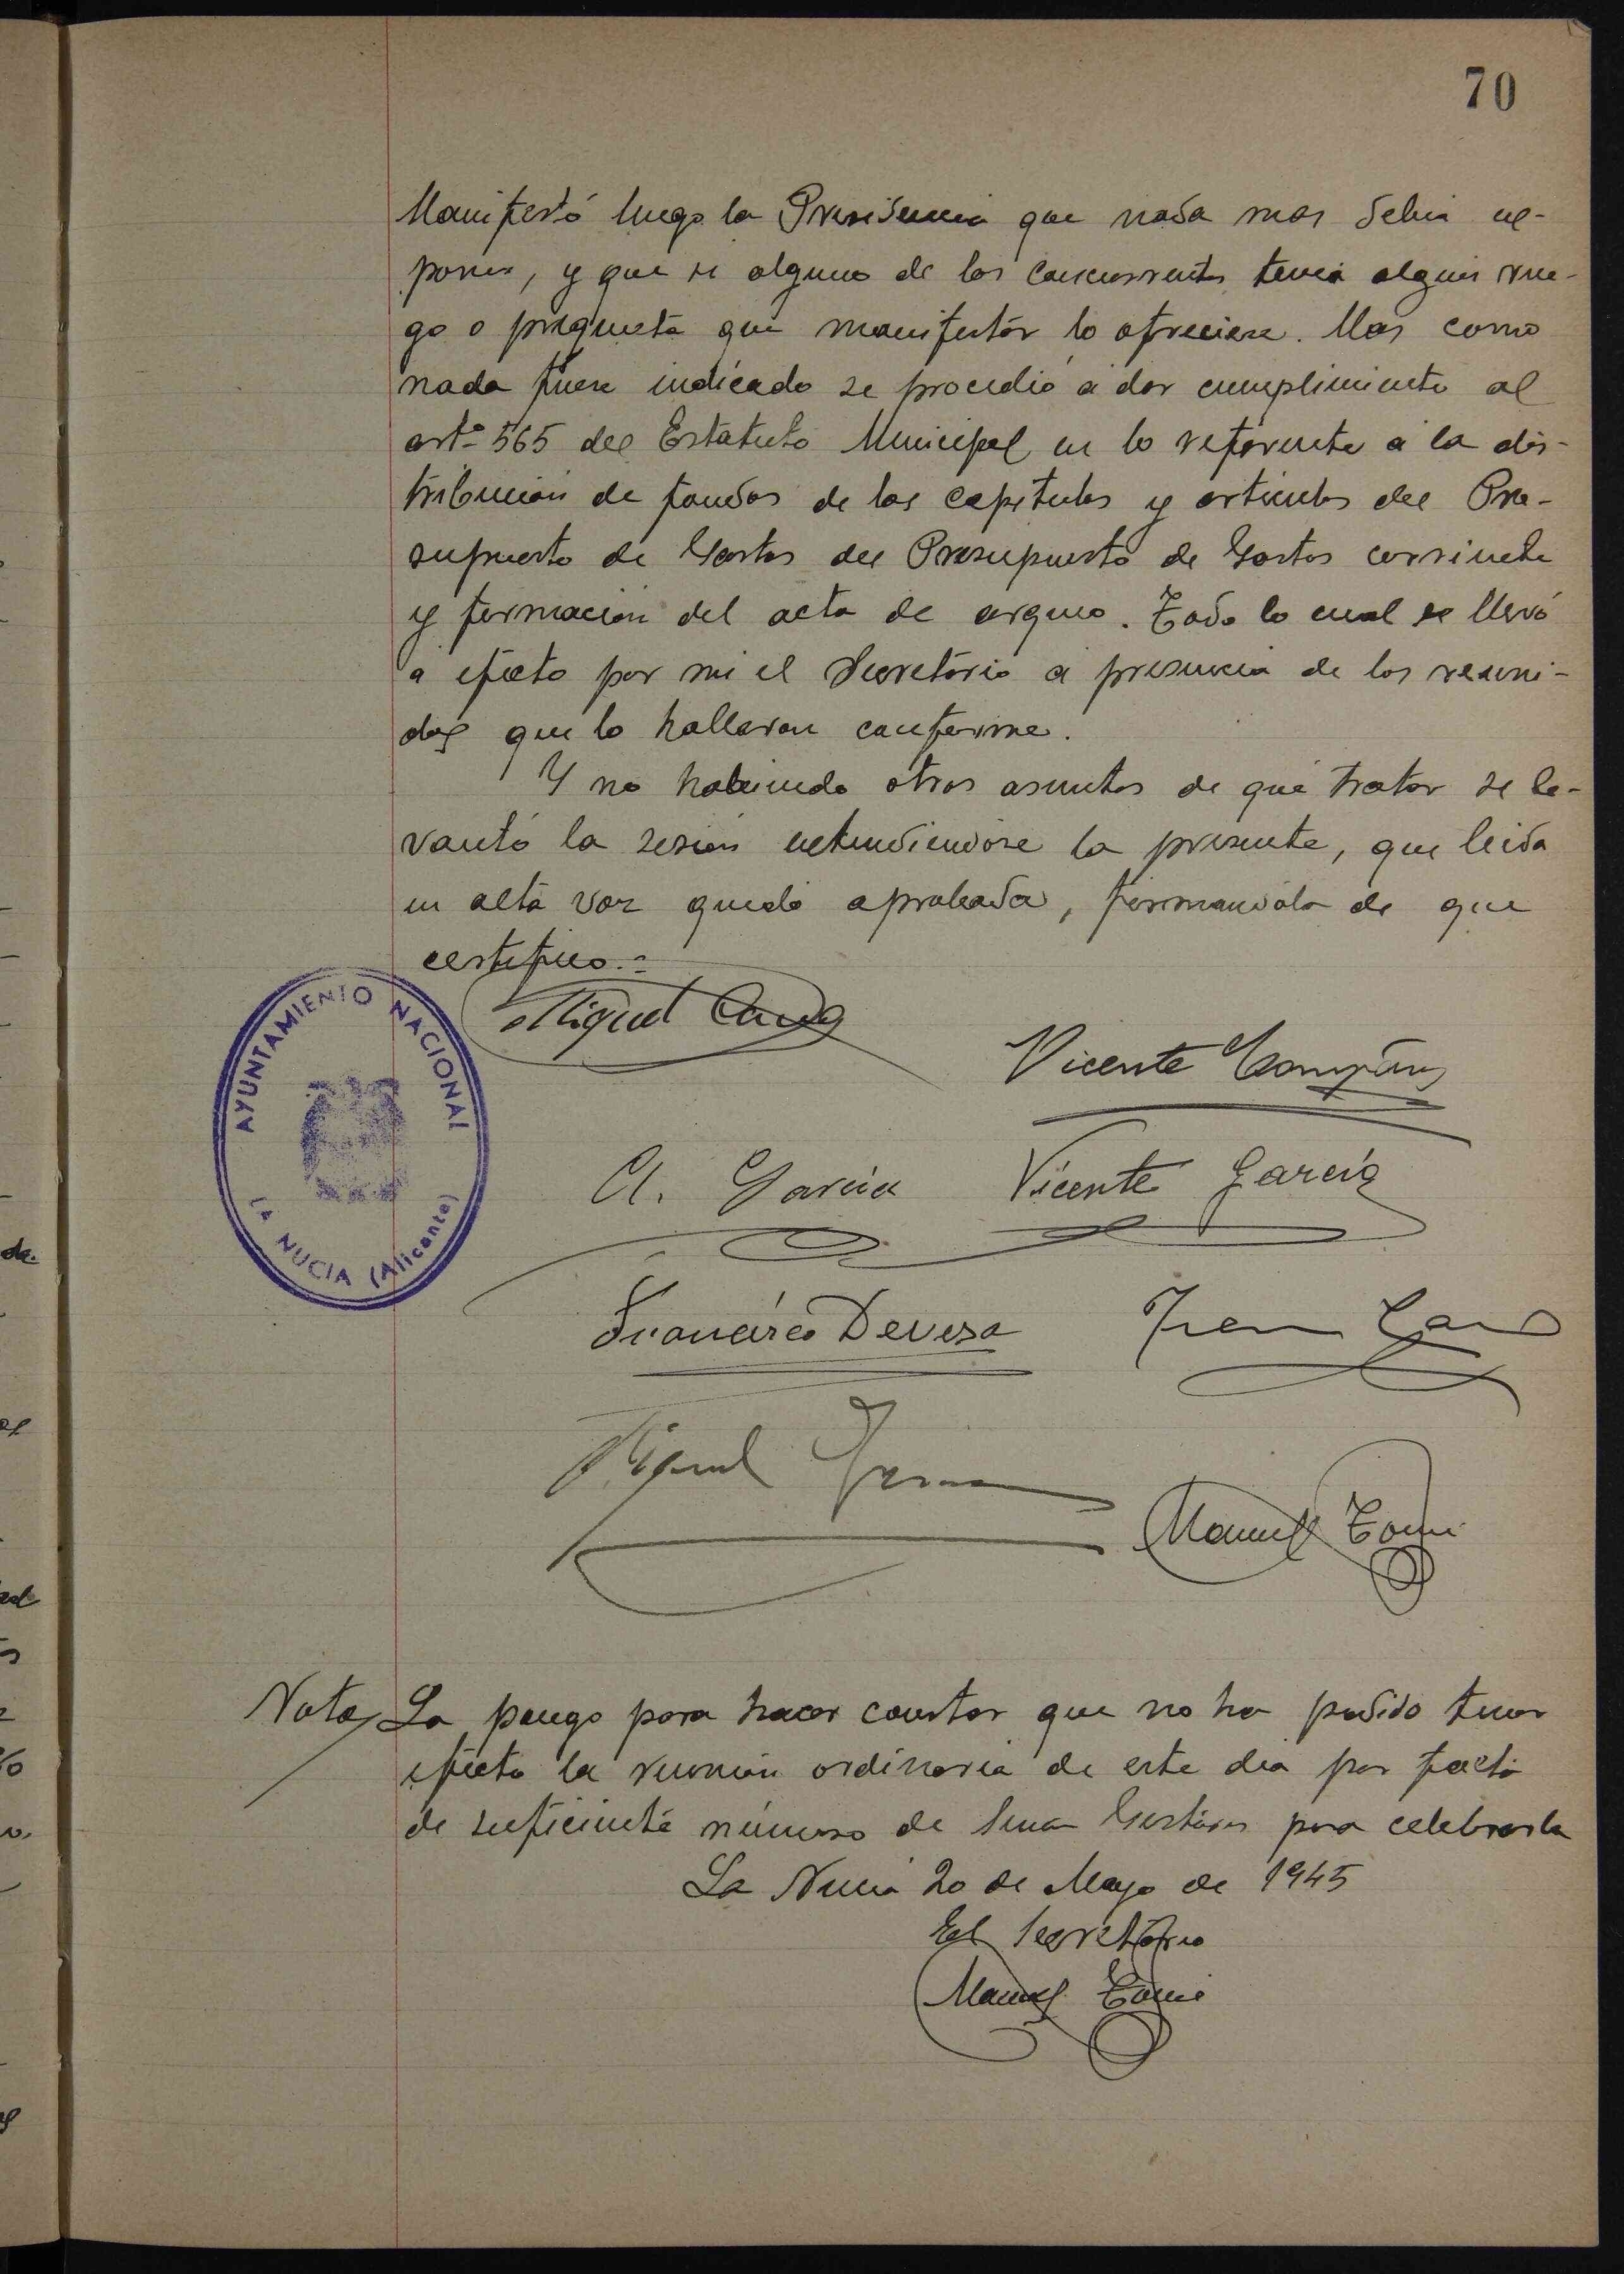 70
Manifestó luego la Presidencia que nada mas debia ex-
poner, y que si alguno de los concurrentes tenia algun rue-
go o pregunta que manifestár lo ofreciese. Mas como
nada fuese indicado se procedió a dar cumplimiento al
artº 565 del Estatuto Municipal en lo referente a la dis-
tribucion de fondos de los capitulos y articulos del Pre-
supuesto de Gastos del Presupuesto de Gastos corriente
y formacion del acta de arqueo. Todo lo cual se llevó
a efecto por mi el Secretário a presencia de los reuni-
dos que lo hallaron conforme.
Y no habiendo otros asuntos de que tratar se le-
vantó la sesion extendiendose la presente, que leida
en alta voz quedó aprobada, firmandola de que
certifico.=
Miguel Cano
Vicente Company
AYUNTAMIENTO NACIONAL
LA NUCIA (Alicante)
A. Garcia Vicente García
Francisco Devesa
Miguel
Manuel Tomé
Nota La pongo para hacer constar que no ha podido tener
efecto la reunion ordinaria de este dia por falta
de suficiente número de Gestores para celebrarla
La Nucia 20 de Mayo de 1945
El Secretário
Manuel Tomé